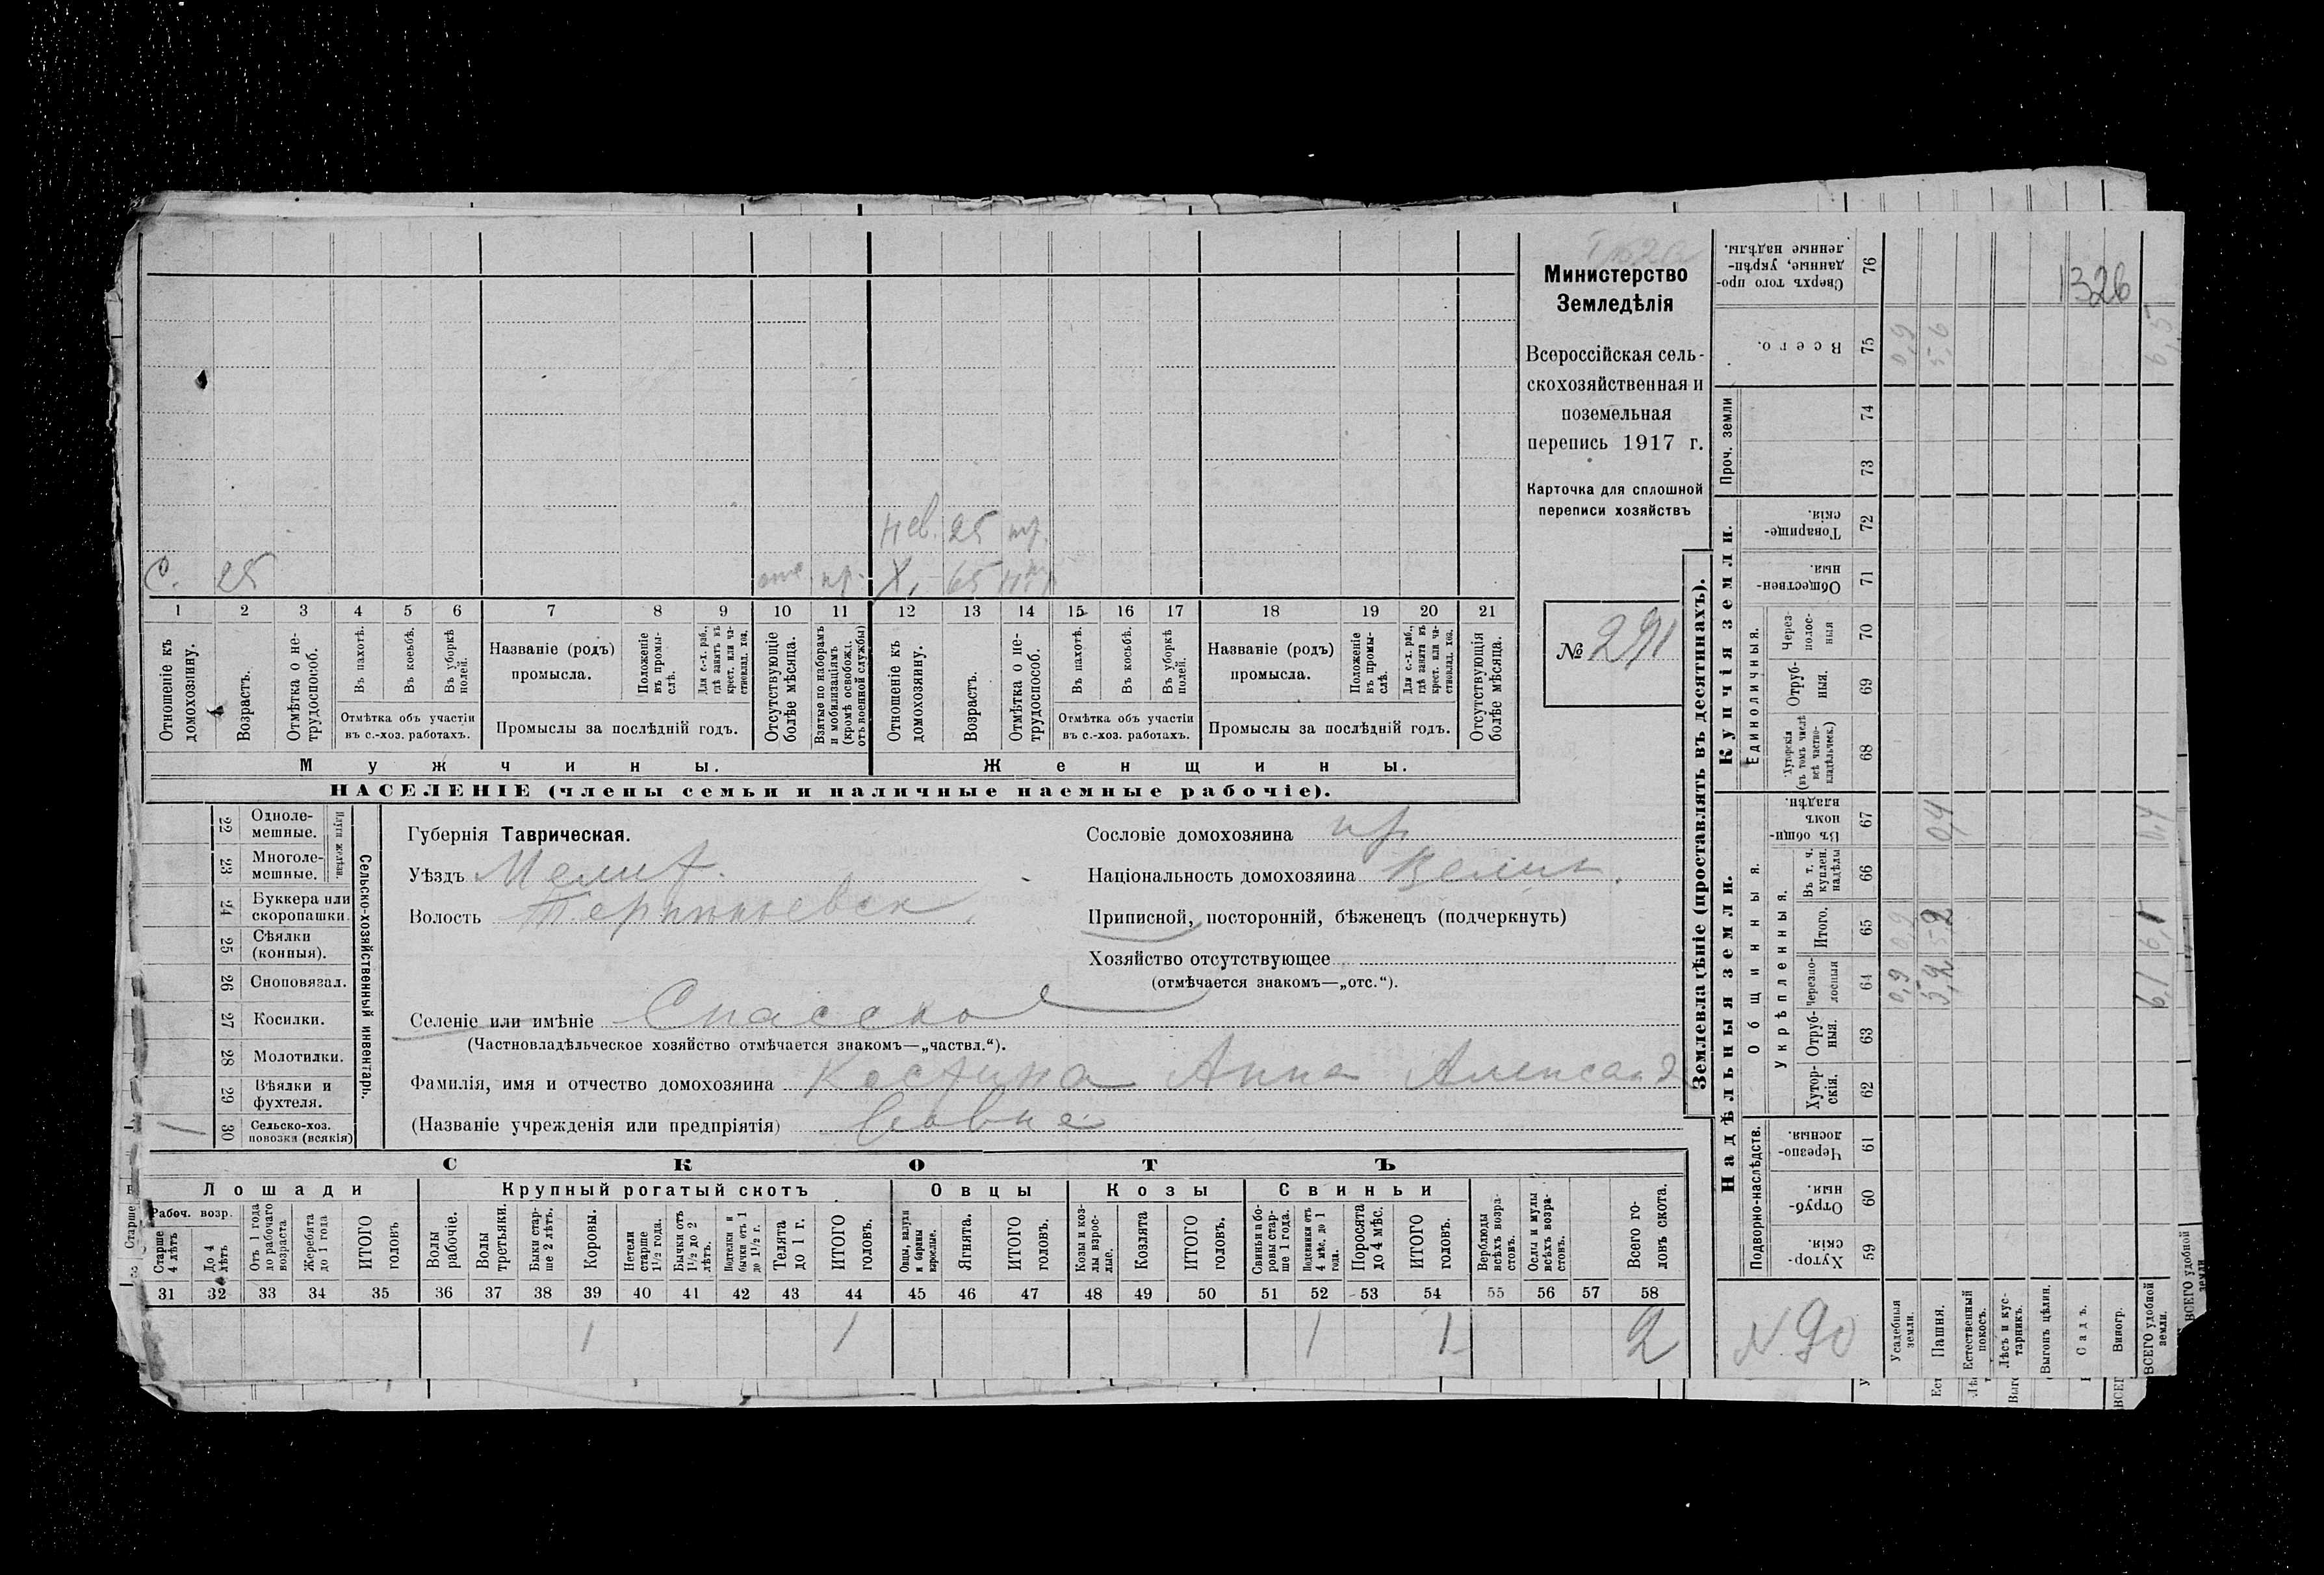 Министерство
Земледѣлія
Всероссійская сель-
скохозяйственная и
поземельная
перепись 1917 г.
Карточка для сплошной
переписи хозяйствъ
№ 291
нев. 25
С. 25 отс. Х. 65
1 2 3 4 5 6 7 8 9 10 11 12 13 14 15 16 17 18 19 20 21
Отношеніе къ домохозяину.
Возрастъ.
Отмѣтка о не-трудоспособ.
Въ пахотѣ.
Въ косьбѣ.
Въ уборкѣ полей.
Отмѣтка объ участіи
въ с.-хоз. работахъ.
Названіе (родъ)
промысла.
Положеніе въ промы-слѣ.
Для с.-х. раб., гдѣ занятъ въ крест. или ча-стновлад. хоз.
Промыслы за послѣдній годъ.
Отсутствующіе болѣе мѣсяца.
Взятые по наборамъ и мобилизаціямъ (кромѣ освобожд. отъ военной службы)
Отношеніе къ домохозяину.
Возрастъ.
Отмѣтка о не-трудоспособ.
Въ пахотѣ.
Въ косьбѣ.
Въ уборкѣ полей.
Отмѣтка объ участіи
въ с.-хоз. работахъ.
Названіе (родъ)
промысла.
Положеніе въ промы-слѣ.
Для с.-х. раб., гдѣ занята въ крест. или ча-стновлад. хоз.
Промыслы за послѣдній годъ.
Отсутствующія болѣе мѣсяца.
Мужчины.
Женщины.
НАСЕЛЕНІЕ (члены семьи и наличные наемные рабочіе).
22 Одноле-мешные.
23 Многоле-мешные.
Плуги желѣзн.
24 Буккера или скоропашки.
25 Сѣялки (конныя).
26 Сноповязал.
27 Косилки.
28 Молотилки.
29 Вѣялки и фухтеля.
1 30 Сельско-хоз. повозки (всякія)
Сельско-хозяйственный инвентарь.
Губернія Таврическая.
Уѣздъ Мелит.
Волость
Сословіе домохозяина кр.
Національность домохозяина Велик.
Приписной, посторонній, бѣженецъ (подчеркнуть)
Хозяйство отсутствующее
(отмѣчается знакомъ—„отс.“).
Селеніе или имѣніе Спасско
(Частновладѣльческое хозяйство отмѣчается знакомъ—„частвл.“).
Фамилія, имя и отчество домохозяина Костина Анна Александ
(Названіе учрежденія или предпріятія)
СКОТЪ
Лошади
Крупный рогатый скотъ
Овцы
Козы
Свиньи
Рабоч. возр.
Старше 4 лѣтъ
До 4 лѣтъ
Отъ 1 года до рабочаго возраста
Жеребята до 1 года
ИТОГО головъ
Волы рабочіе.
Волы третьяки.
Быки стар-ше 2 лѣтъ.
Коровы.
Нетели старше 1½ года.
Бычки отъ 1½ до 2 лѣтъ.
Подтелки и бычки отъ 1 до 1½ г.
Телята до 1 г.
ИТОГО головъ.
Овцы, валухи и бараны взрослые.
Ягнята.
ИТОГО головъ.
Козы и коз-лы взрос-лые.
Козлята
ИТОГО головъ.
Свиньи и бо-ровы стар-ше 1 года.
Подсвинки отъ 4 мѣс. до 1 года.
Поросята до 4 мѣс.
ИТОГО головъ.
Верблюды всѣхъ возра-стовъ.
Ослы и мулы всѣхъ возра-стовъ.
Всего го-ловъ скота.
31 32 33 34 35 36 37 38 39 40 41 42 43 44 45 46 47 48 49 50 51 52 53 54 55 56 57 58
1 1 1 1 2
Землевладѣніе (проставлять въ десятинахъ).
Надѣльныя земли.
Купчія земли.
Проч. земли
Подворно-наслѣдств.
Общинныя.
Укрѣпленныя.
Единоличныя.
Хутор-скія. 59
Отруб-ныя. 60
Черезпо-лосныя. 61
Хутор-скія. 62
Отруб-ныя. 63
Черезпо-лосныя 64 0,9 5,2 6,1
Итого. 65 0,9 5,2 6,1
Въ т. ч. куплен. надѣлы 66
Въ общи-номъ владѣн. 67 0,4 0,4
Хуторскія (въ томъ числѣ всѣ частно-владѣльческ.) 68
Отруб-ныя. 69
Через-полос-ныя 70
Обществен-ныя. 71
Товарище-скія. 72
73
74
Всего. 75 0,9 5,6 6,5
Сверхъ того про-данные, укрѣп-ленные надѣлы. 76
1326
N. 90
Усадебныя земли.
Пашня.
Естественный покосъ.
Лѣсъ и кус-тарникъ.
Выгонъ цѣлин.
Садъ.
Виногр.
ВСЕГО удобной земли.
ВСЕГО удобной земли